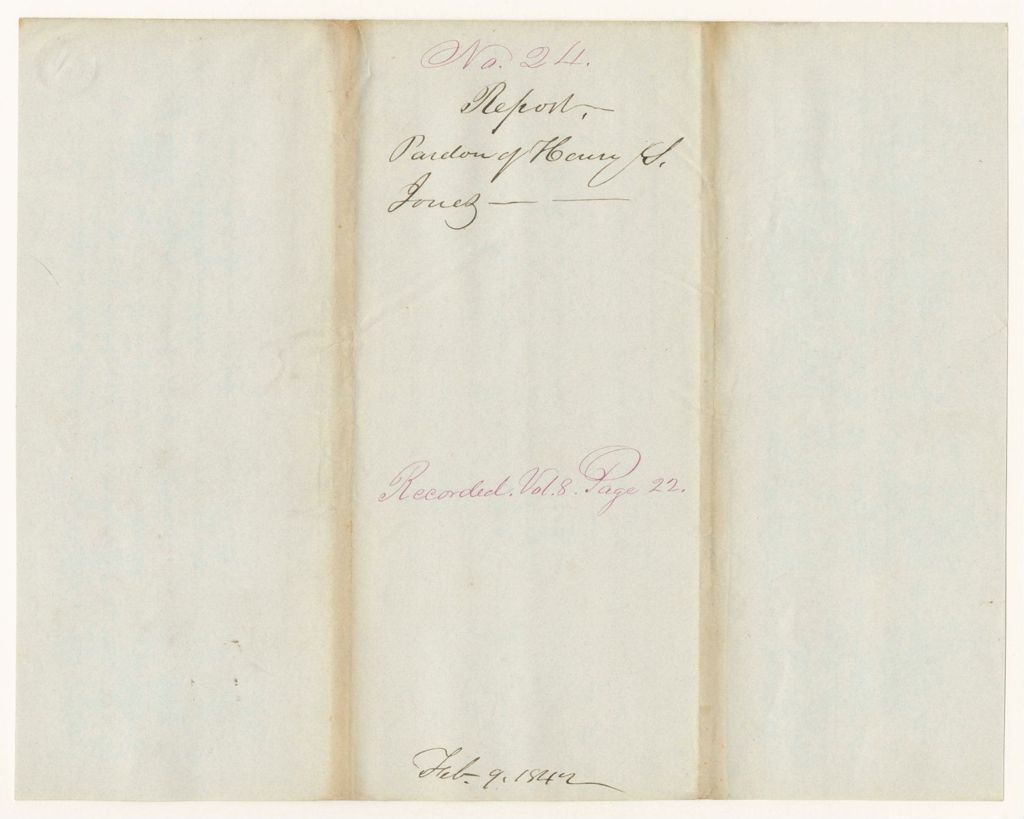 No. 24.
Report,
Pardon of Henry S.
Jones — —
Recorded. Vol. 8. Page 22.
Feb. 9. 1842